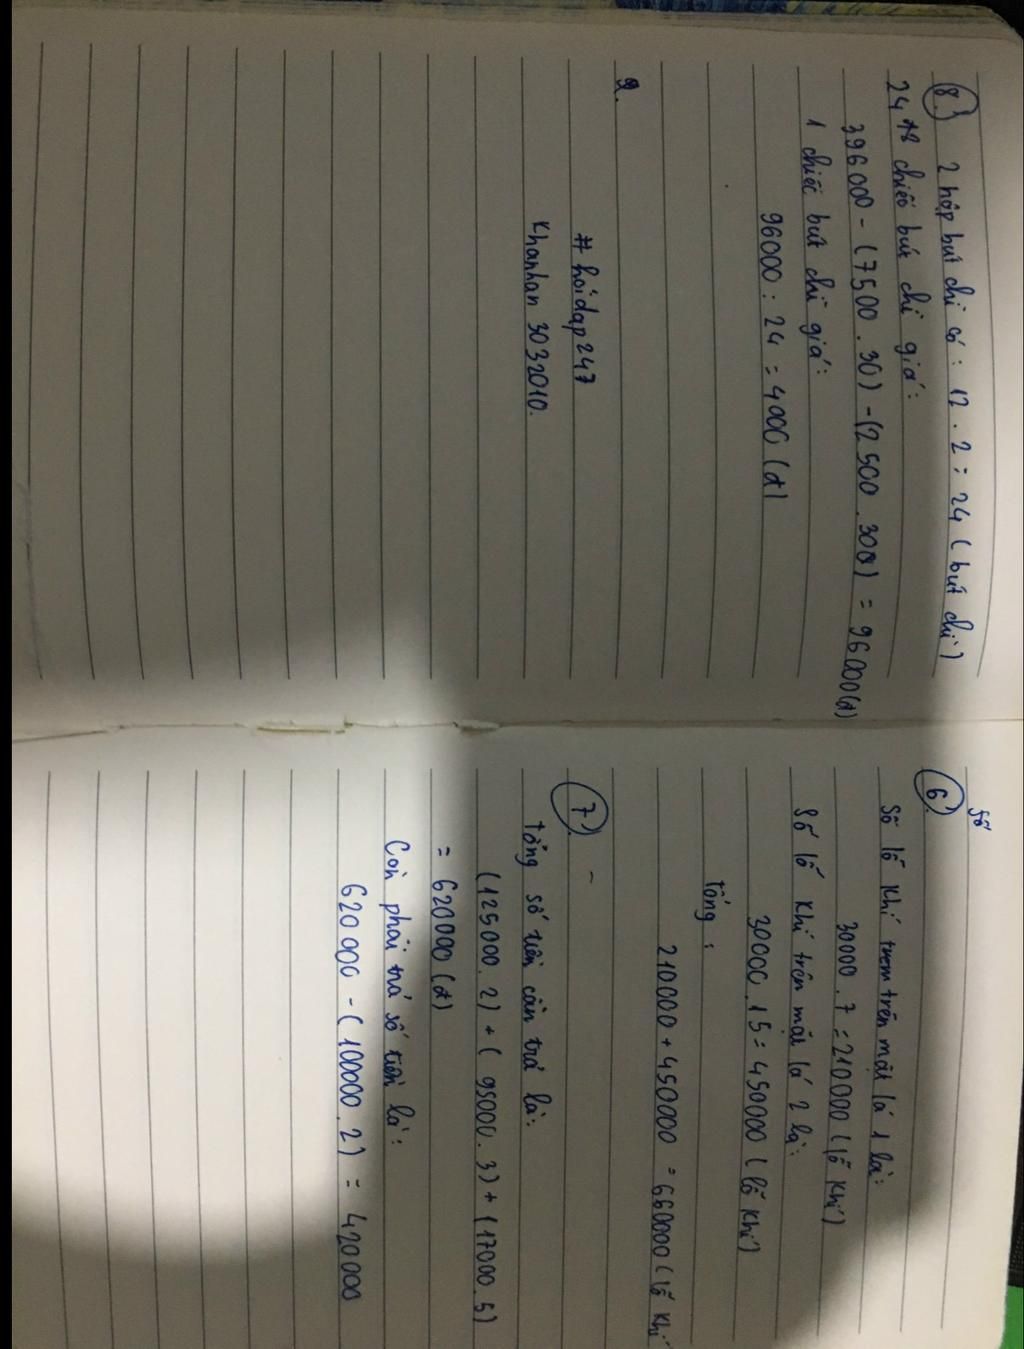 8.) 2 hộp bút chì có : 12 . 2 = 24 ( bút chì )
24 chiếc bút chì giá :
396000 - (7500 . 30) - (2500 . 300) = 96000 (đ)
1 chiếc bút chì giá :
96000 : 24 = 4000 (đ)
#hoidap247
Khanhan3032010.
Số
6.)
Số lỗ khí trên mặt lá 1 là :
30000 . 7 = 210000 (lỗ khí)
Số lỗ khí trên mặt lá 2 là :
30000 . 15 = 450000 ( lỗ khí)
tổng :
210000 + 450000 = 660000 (lỗ khí
7) -
tổng số tiền cần trả là :
(125000 . 2) + ( 95000 . 3) + (17000 . 5)
= 620000 (đ)
Còn phải trả số tiền là :
620 000 - ( 100000 . 2) = 420000